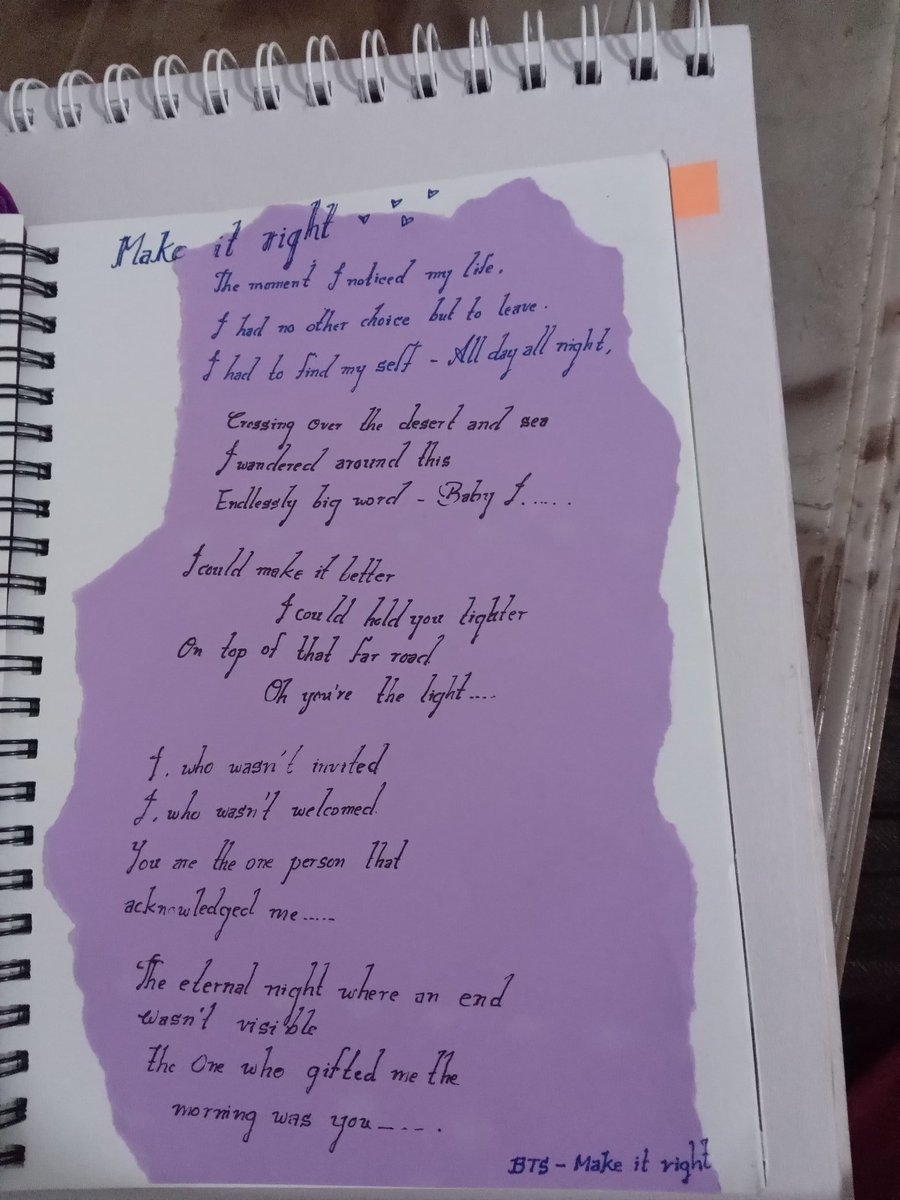 Make it right
The moment I noticed my life,
I had no other choice but to leave.
I had to find my self - All day all night,
Crossing over the desert and sea
I wandered around this
Endlessly big word - Baby I.....
I could make it better
I could hold you tighter
On top of that far road
Oh you're the light....
I, who wasn't invited
I, who wasn't welcomed.
You are the one person that
acknowledged me.....
The eternal night where an end
wasn't visible
the One who gifted me the
morning was you_....
BTS - Make it right